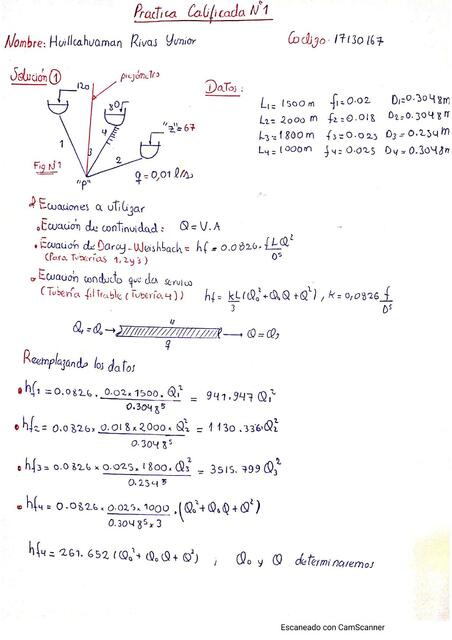 Practica Calificada Nº1
Nombre: Huillcahuaman Rivas Yunior Codigo: 17130167
Solución ①
120
piezómetro
80
"z"=67
1 3 4 2
"P"
q = 0,01 l/s
Fig Nº1
Datos:
L1 = 1500 m f1 = 0.02 D1 = 0.3048 m
L2 = 2000 m f2 = 0.018 D2 = 0.3048 m
L3 = 1800 m f3 = 0.025 D3 = 0.254 m
L4 = 1000 m f4 = 0.025 D4 = 0.3048 m
Ecuaciones a utilizar
Ecuación de continuidad: Q = V.A
Ecuación de Darcy-Weishbach = hf = 0.0826 . fLQ²/D⁵
(Para tuberias 1,2y3)
Ecuación conducto que da servicio
(Tubería filtrable (Tubería 4)) hf = kL/3 (Q0² + Q0Q + Q²) , K = 0,0826 f/D⁵
4
Q4 = Q0 → → Q = Q3
q
Reemplazando los datos
hf1 = 0.0826 . 0.02 x 1500 . Q1² / 0.3048⁵ = 941.947 Q1²
hf2 = 0.0826 x 0.018 x 2000 x Q2² / 0.3048⁵ = 1130.336 Q2²
hf3 = 0.0826 x 0.025 x 1800 x Q3² / 0.254⁵ = 3515.799 Q3²
hf4 = 0.0826 x 0.025 x 1000 / 0.3048⁵ x 3 . (Q0² + Q0Q + Q²)
hf4 = 261.652 (Q0² + Q0Q + Q²) ; Q0 y Q determinaremos
Escaneado con CamScanner